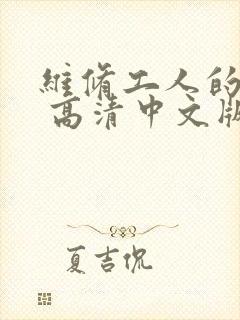 維脩工人的
高清中文版
夏吉侃